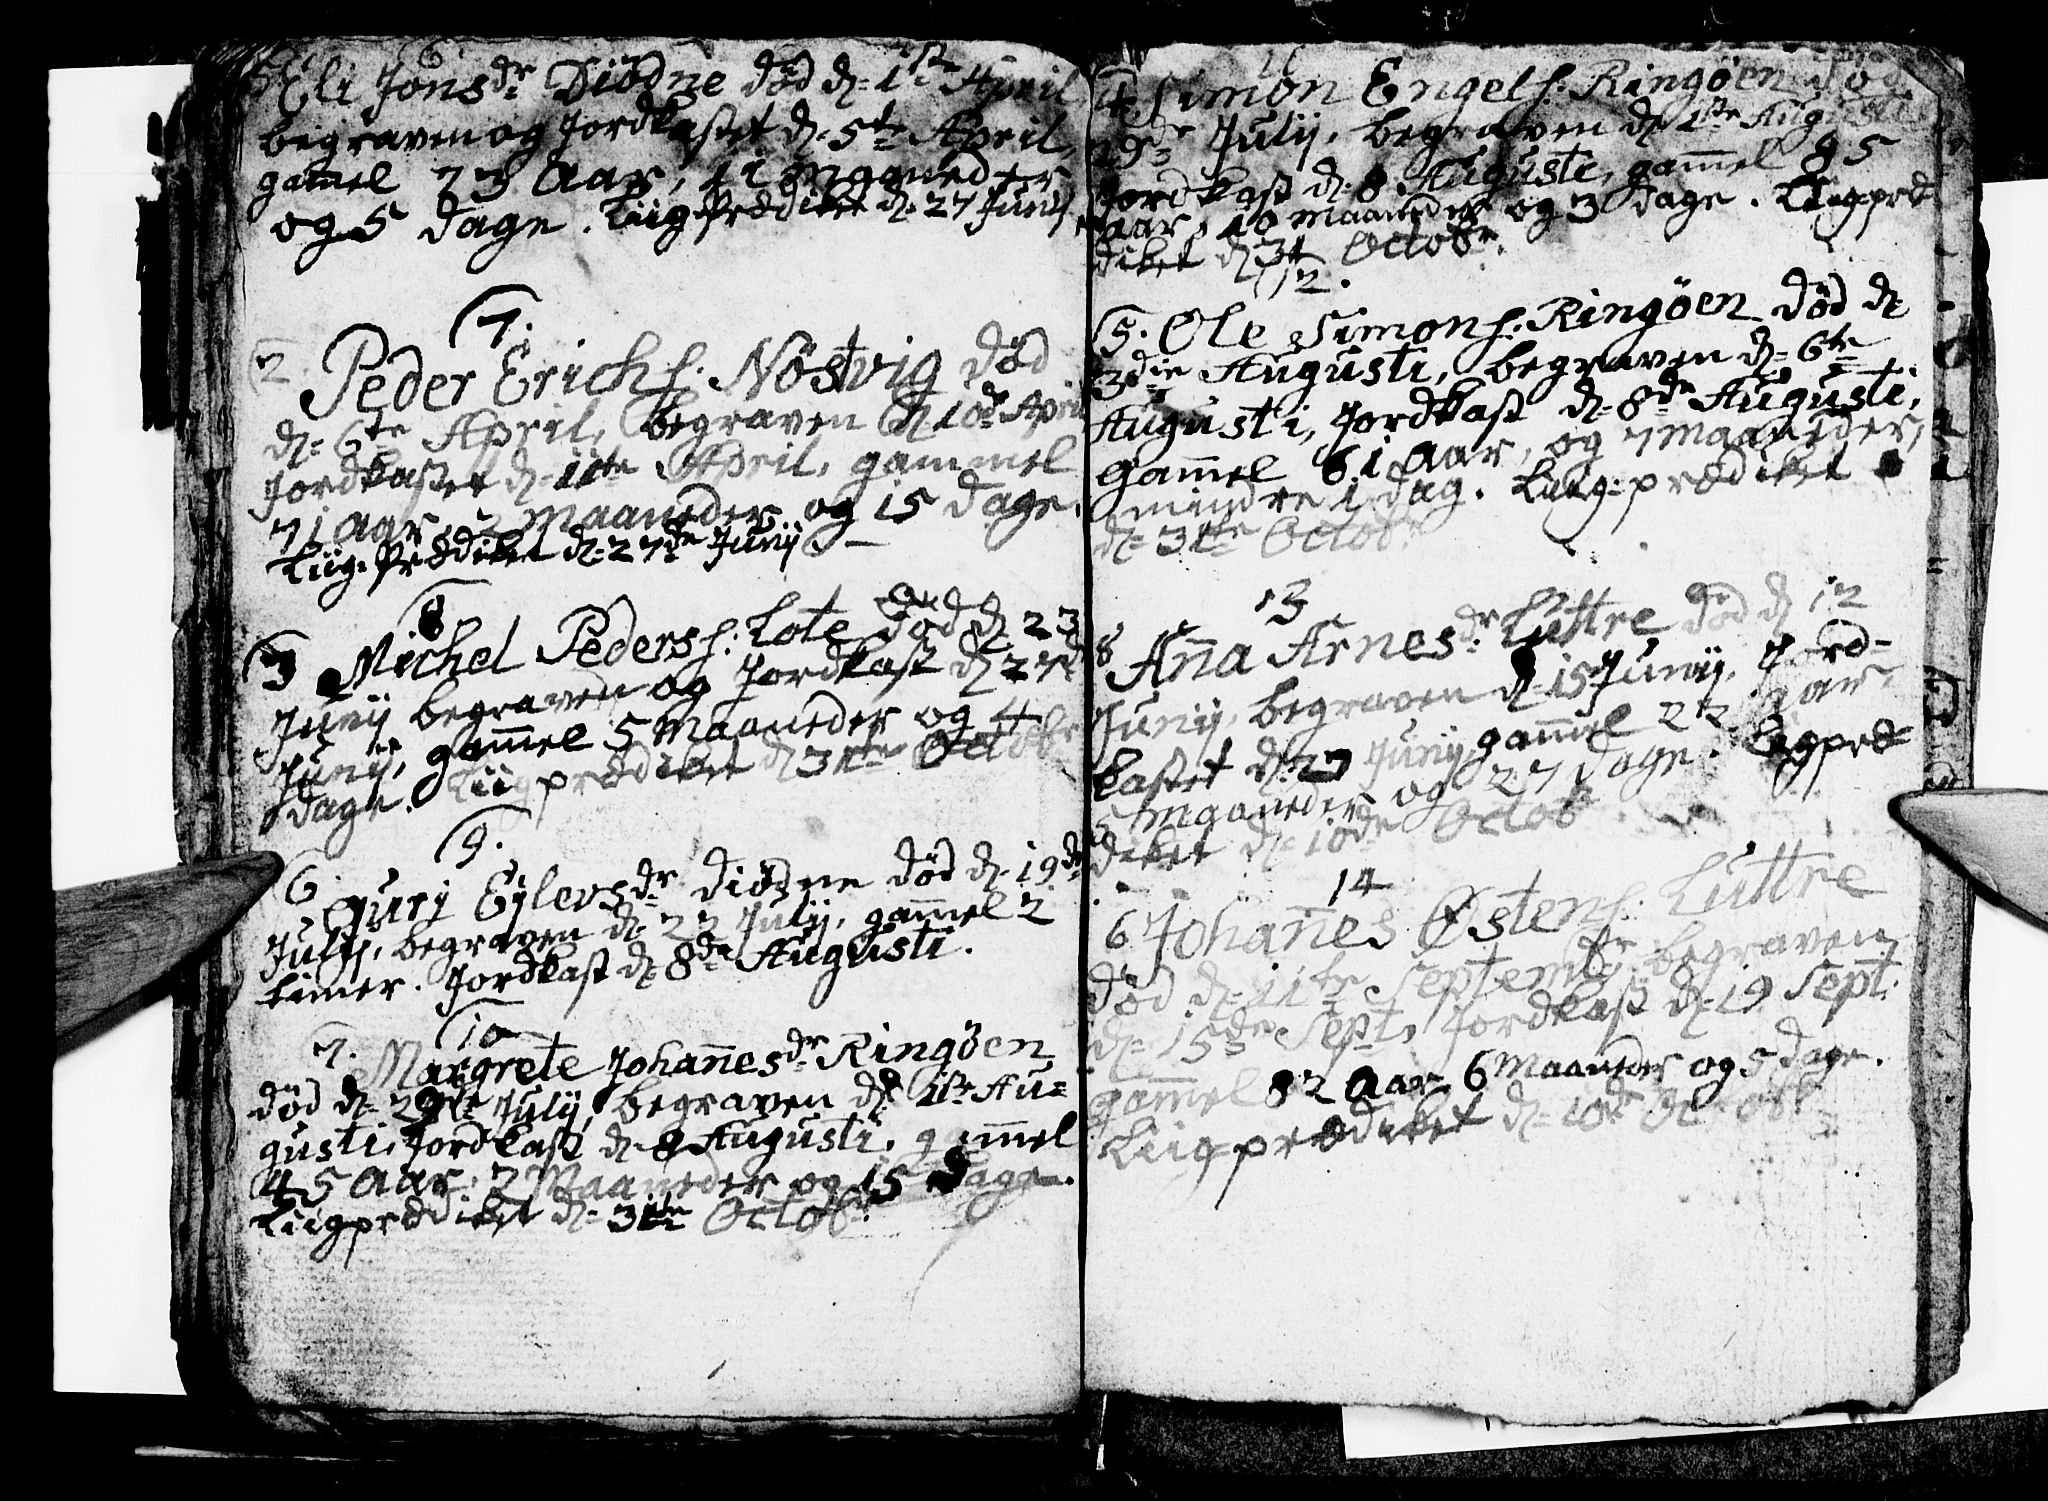 6
5 Eli Jonsdr Diödne död d. 1ste April
begraven og Jordkastet d. 5te April,
gam̅el 73 Aar, 11 Maaneder
og 5 dage. Liig Prædiket d. 27 Junij
7.
2. Peder Erichs: Nöstvig död
d. 6te April, begraven d. 10de April
Jordkastet d. 11te April, gammel
71 Aar, 2 Maaneder og 15 dage.
Liig-Prædiket d. 27de Junij
8
3 Michel Peders: Lote död d. 23
Junij begraven og Jordkast d. 27de
Junij, gam̅el 5 Maaneder og 4
dage. Liigprædiket d. 31te Octobr
9.
6. Gurj Eylersdr Diödne död d. 19de
Julij, begraven d. 22 Julij, gam̅el 2
timer. Jordkast d. 8de Augusti.
10
7. Margrete Johan̅esdr Ringöen
död d. 29de Julij, begraven d. 1ste Au=
gusti, Jordkast d. 8 Augusti, gam̅el
45 Aar, 2 Maaneder og 15 Dage.
Liigprædiket d. 31te Octobr
11
4. Simon Engels: Ringöen död
29de Julij, begraven d. 1ste Augusti
Jordkast d. 8 Augusti, gam̅el 85
aar, 10 Maaneder og 3 dage. Liigpræ
diket d. 31 Octobr.
12.
5. Ole Simons: Ringöen död d.
3die Augusti, begraven d. 6te
Augusti, Jordkast d. 8de Augusti,
Gam̅el 61 Aar, og 7 Maaneder,
mindre 1 dag. Liig-prædiket
d. 31te Octobr
13
8 An̅a Arnesdr Luttre död d. 12
Junij, begraven d. 15 Junij, Jord-
kastet d. 27 Junij gam̅el 22 aar,
5 Maaneder og 27 dage. Ligpræ=
diket d. 10de Octobr.
14
6 Johan̅es Østens: Luttre
död d. 11te Septembr begraven
d. 15de Sept, Jordkast d. 19 Sept.
gam̅el 82 Aar, 6 Maaneder og 5 dage.
Liigprædiket d. 10de Octobr